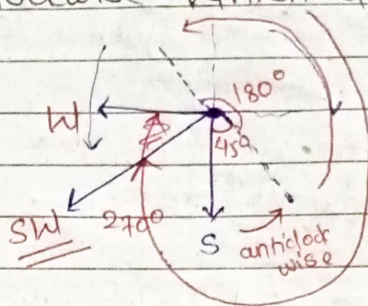 180°
W
45°
SW
270°
S
anticlock
wise